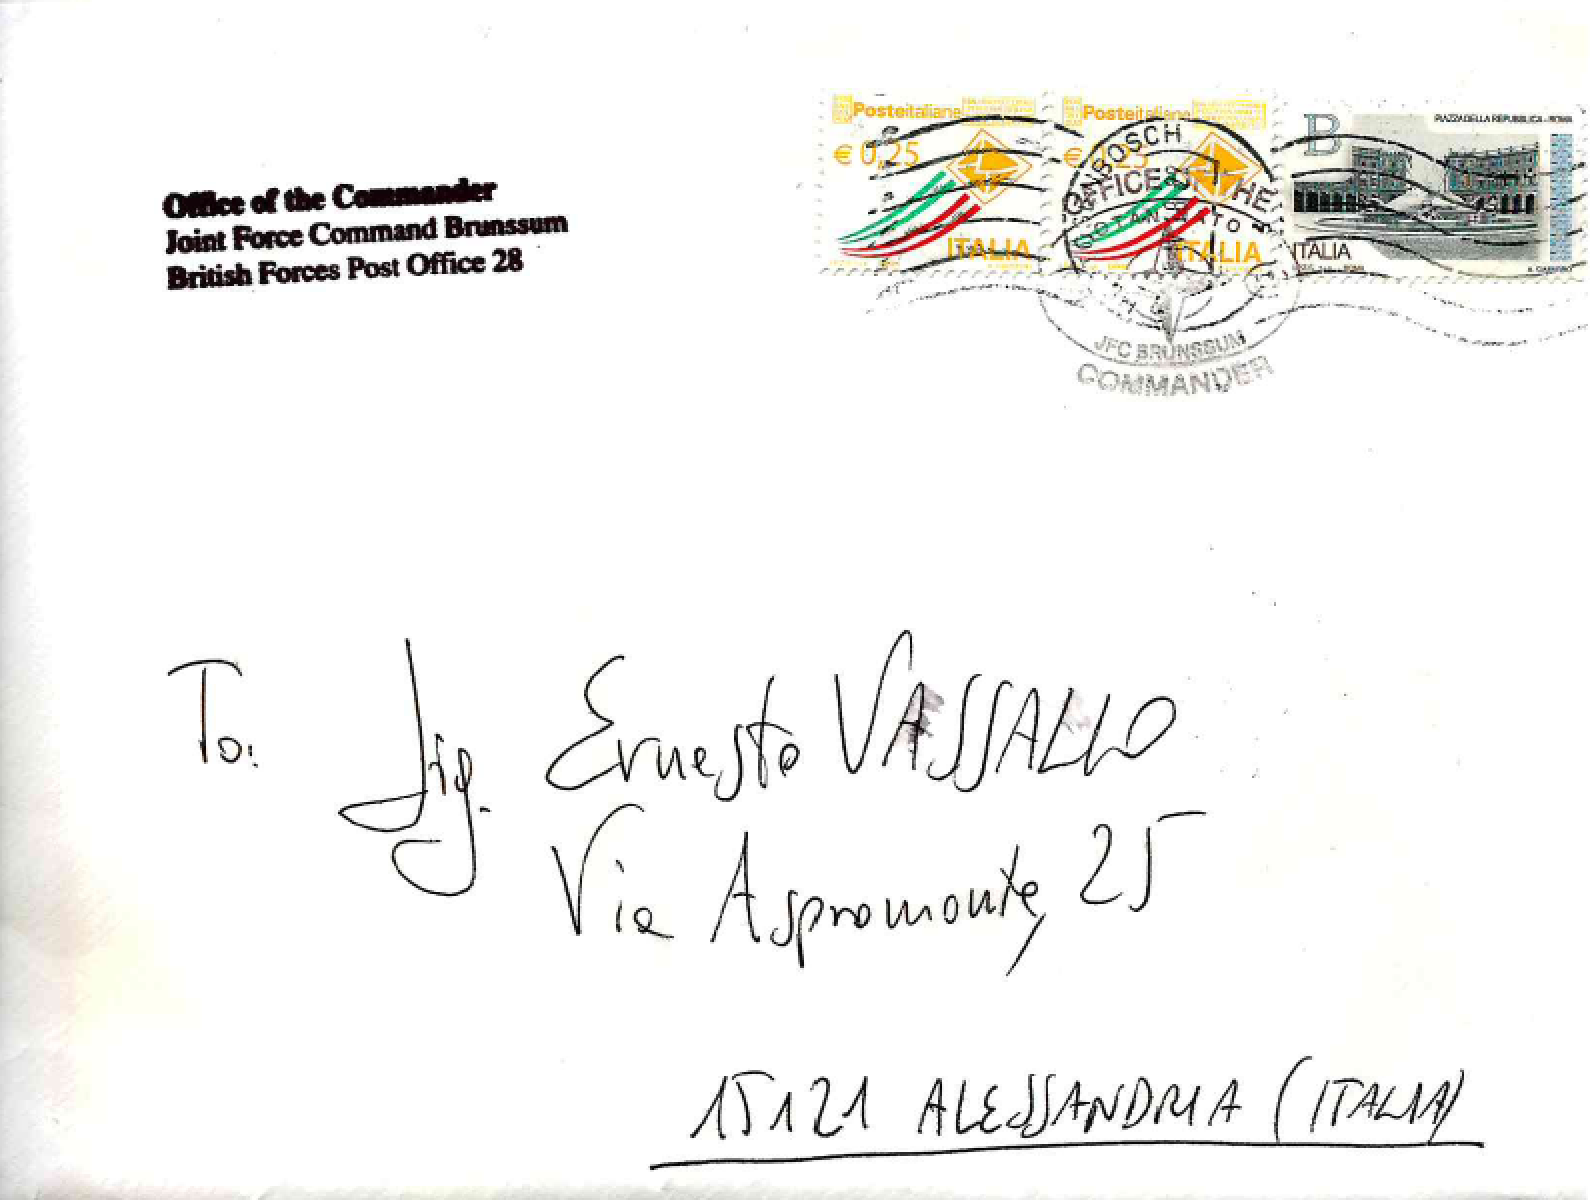 Office of the Commander
Joint Force Command Brunssum
British Forces Post Office 28
Posteitaliane
€ 0,25
ITALIA
Posteitaliane
€
ITALIA
B
PIAZZA DELLA REPUBBLICA - ROMA
ITALIA
OFFICE THE
JFC BRUNSSUM
COMMANDER
To: Sig. Ernesto VASSALLO
Via Aspromonte, 25
15121 ALESSANDRIA (ITALIA)